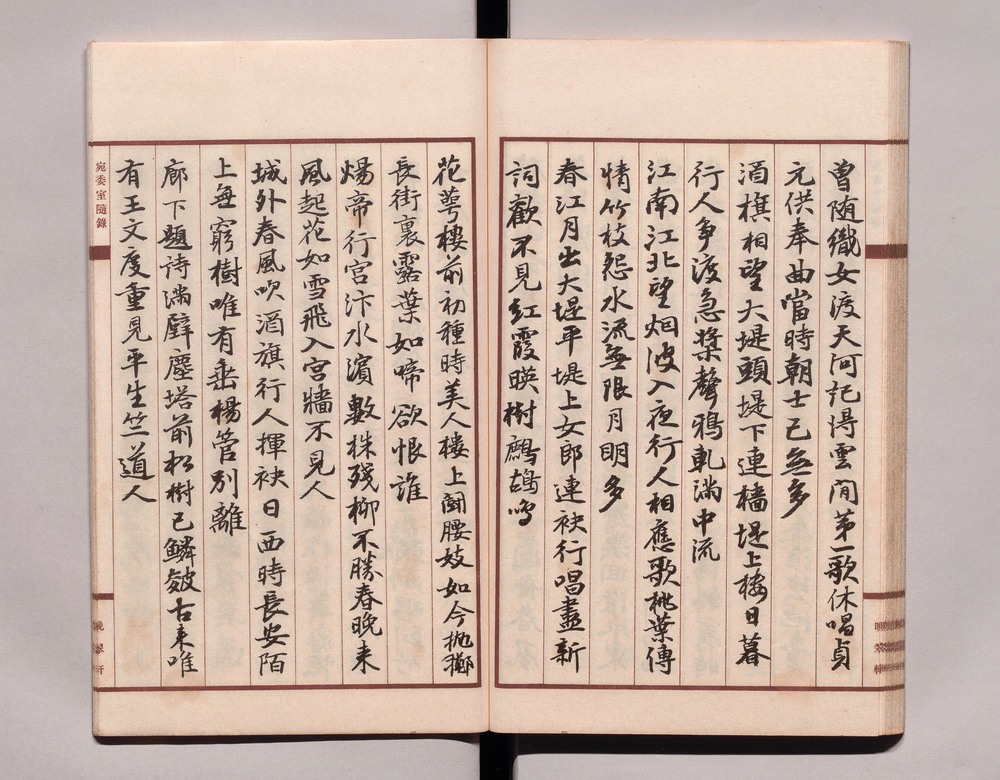 曾随織女渡天河記得雲間第一歌休唱貞
元供奉曲當時朝士已無多
酒檥相望大堤頭堤下連檣堤上樓日暮
行人争渡急槳聲鴉軋滿中流
江南江北望烟波入夜行人相應歌桃葉傳
情竹枝怨水流無限月明多
春江月出大堤平堤上女郎連袂行唱盡新
詞歡不見紅霞暎樹鷓鴣鳴
花萼樓前初種時美人樓上鬭腰妓如今抛擲
長街裏露葉如啼欲恨誰
煬帝行宮汴水濱數株殘柳不勝春晚来
風起花如雪飛入宮牆不見人
城外春風吹酒旗行人揮袂日西時長安陌
上無窮樹唯有垂楊管別離
廊下題詩滿壁塵塔前松樹已鱗皴古来唯
有王文度重見平生竺道人
宛委室隨錄
晚翠軒